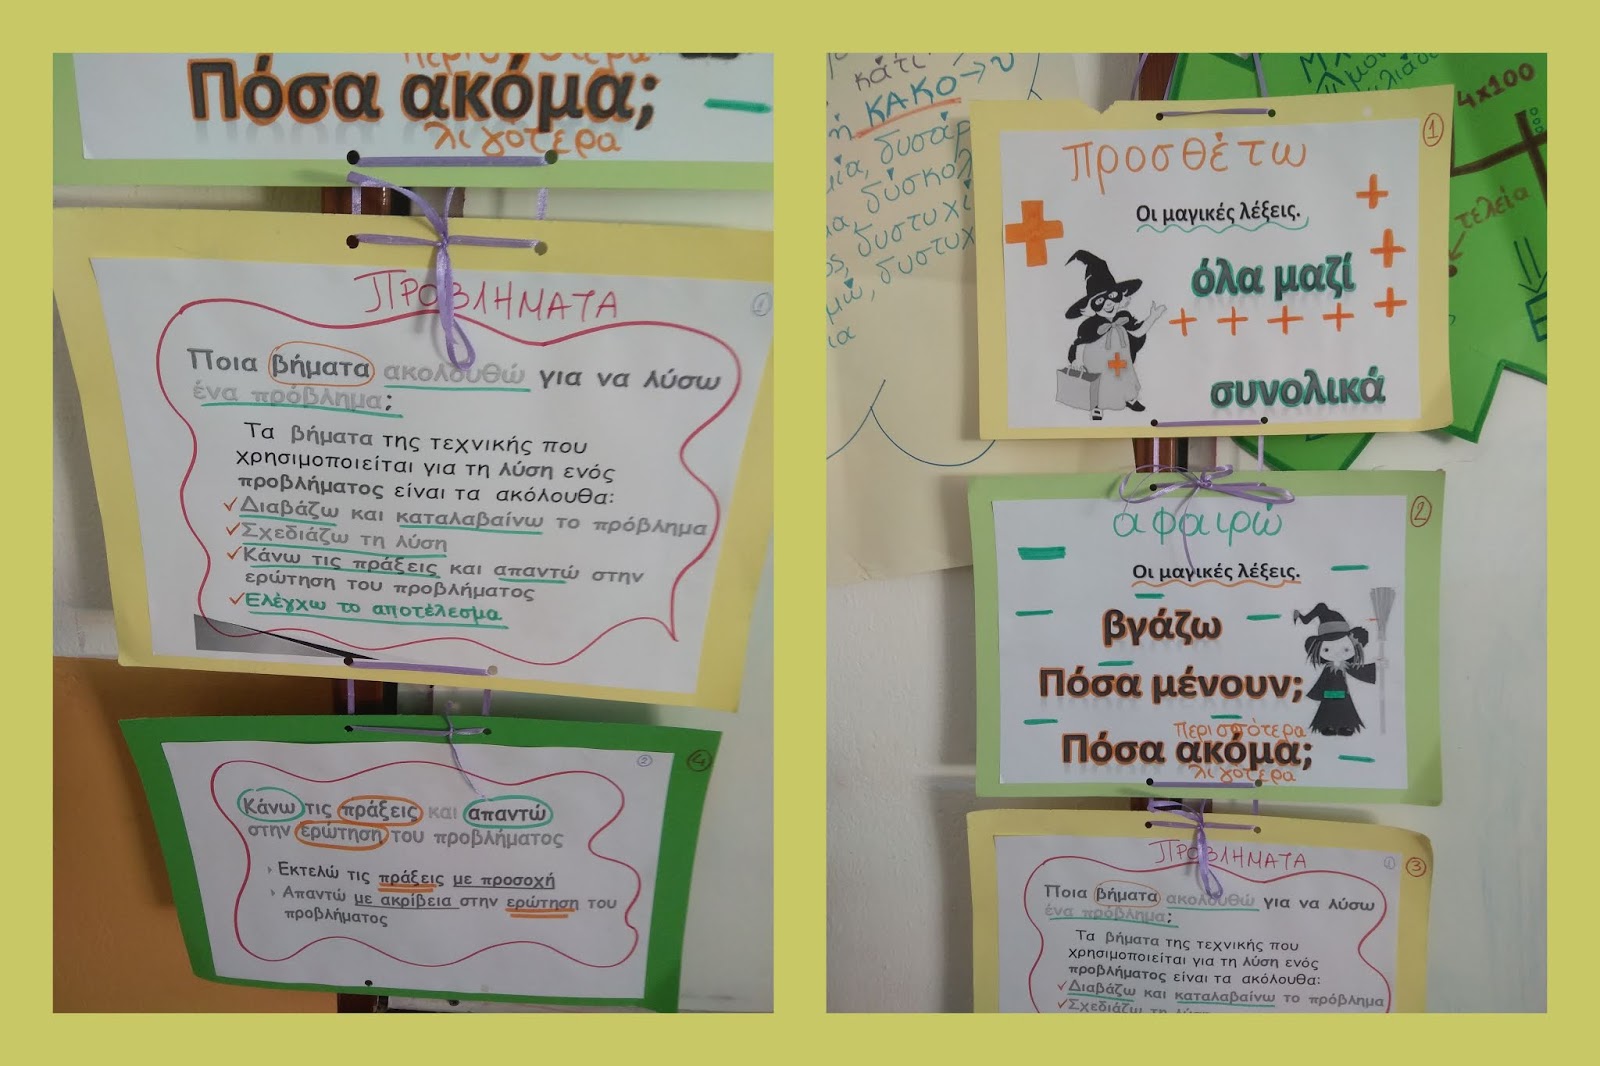 περισσότερα
Πόσα ακόμα;
λιγότερα
ΠΡΟΒΛΗΜΑΤΑ
1
Ποια βήματα ακολουθώ για να λύσω
ένα πρόβλημα;
Τα βήματα της τεχνικής που
χρησιμοποιείται για τη λύση ενός
προβλήματος είναι τα ακόλουθα:
✓Διαβάζω και καταλαβαίνω το πρόβλημα
✓Σχεδιάζω τη λύση
✓Κάνω τις πράξεις και απαντώ στην
ερώτηση του προβλήματος
✓Ελέγχω το αποτέλεσμα
2 4
Κάνω τις πράξεις και απαντώ
στην ερώτηση του προβλήματος
› Εκτελώ τις πράξεις με προσοχή
› Απαντώ με ακρίβεια στην ερώτηση του
προβλήματος
κάτι
ή ΚΑΚΟ→υ
4x100
τελεία
1
προσθέτω
+
Οι μαγικές λέξεις.
+
όλα μαζί
+
+ + + + +
συνολικά
2
αφαιρώ
Οι μαγικές λέξεις.
βγάζω
Πόσα μένουν;
περισσότερα
Πόσα ακόμα;
λιγότερα
ΠΡΟΒΛΗΜΑΤΑ
1 3
Ποια βήματα ακολουθώ για να λύσω
ένα πρόβλημα;
Τα βήματα της τεχνικής που
χρησιμοποιείται για τη λύση ενός
προβλήματος είναι τα ακόλουθα:
✓Διαβάζω και καταλαβαίνω το πρόβλημα
✓Σχεδιάζω τη λύση